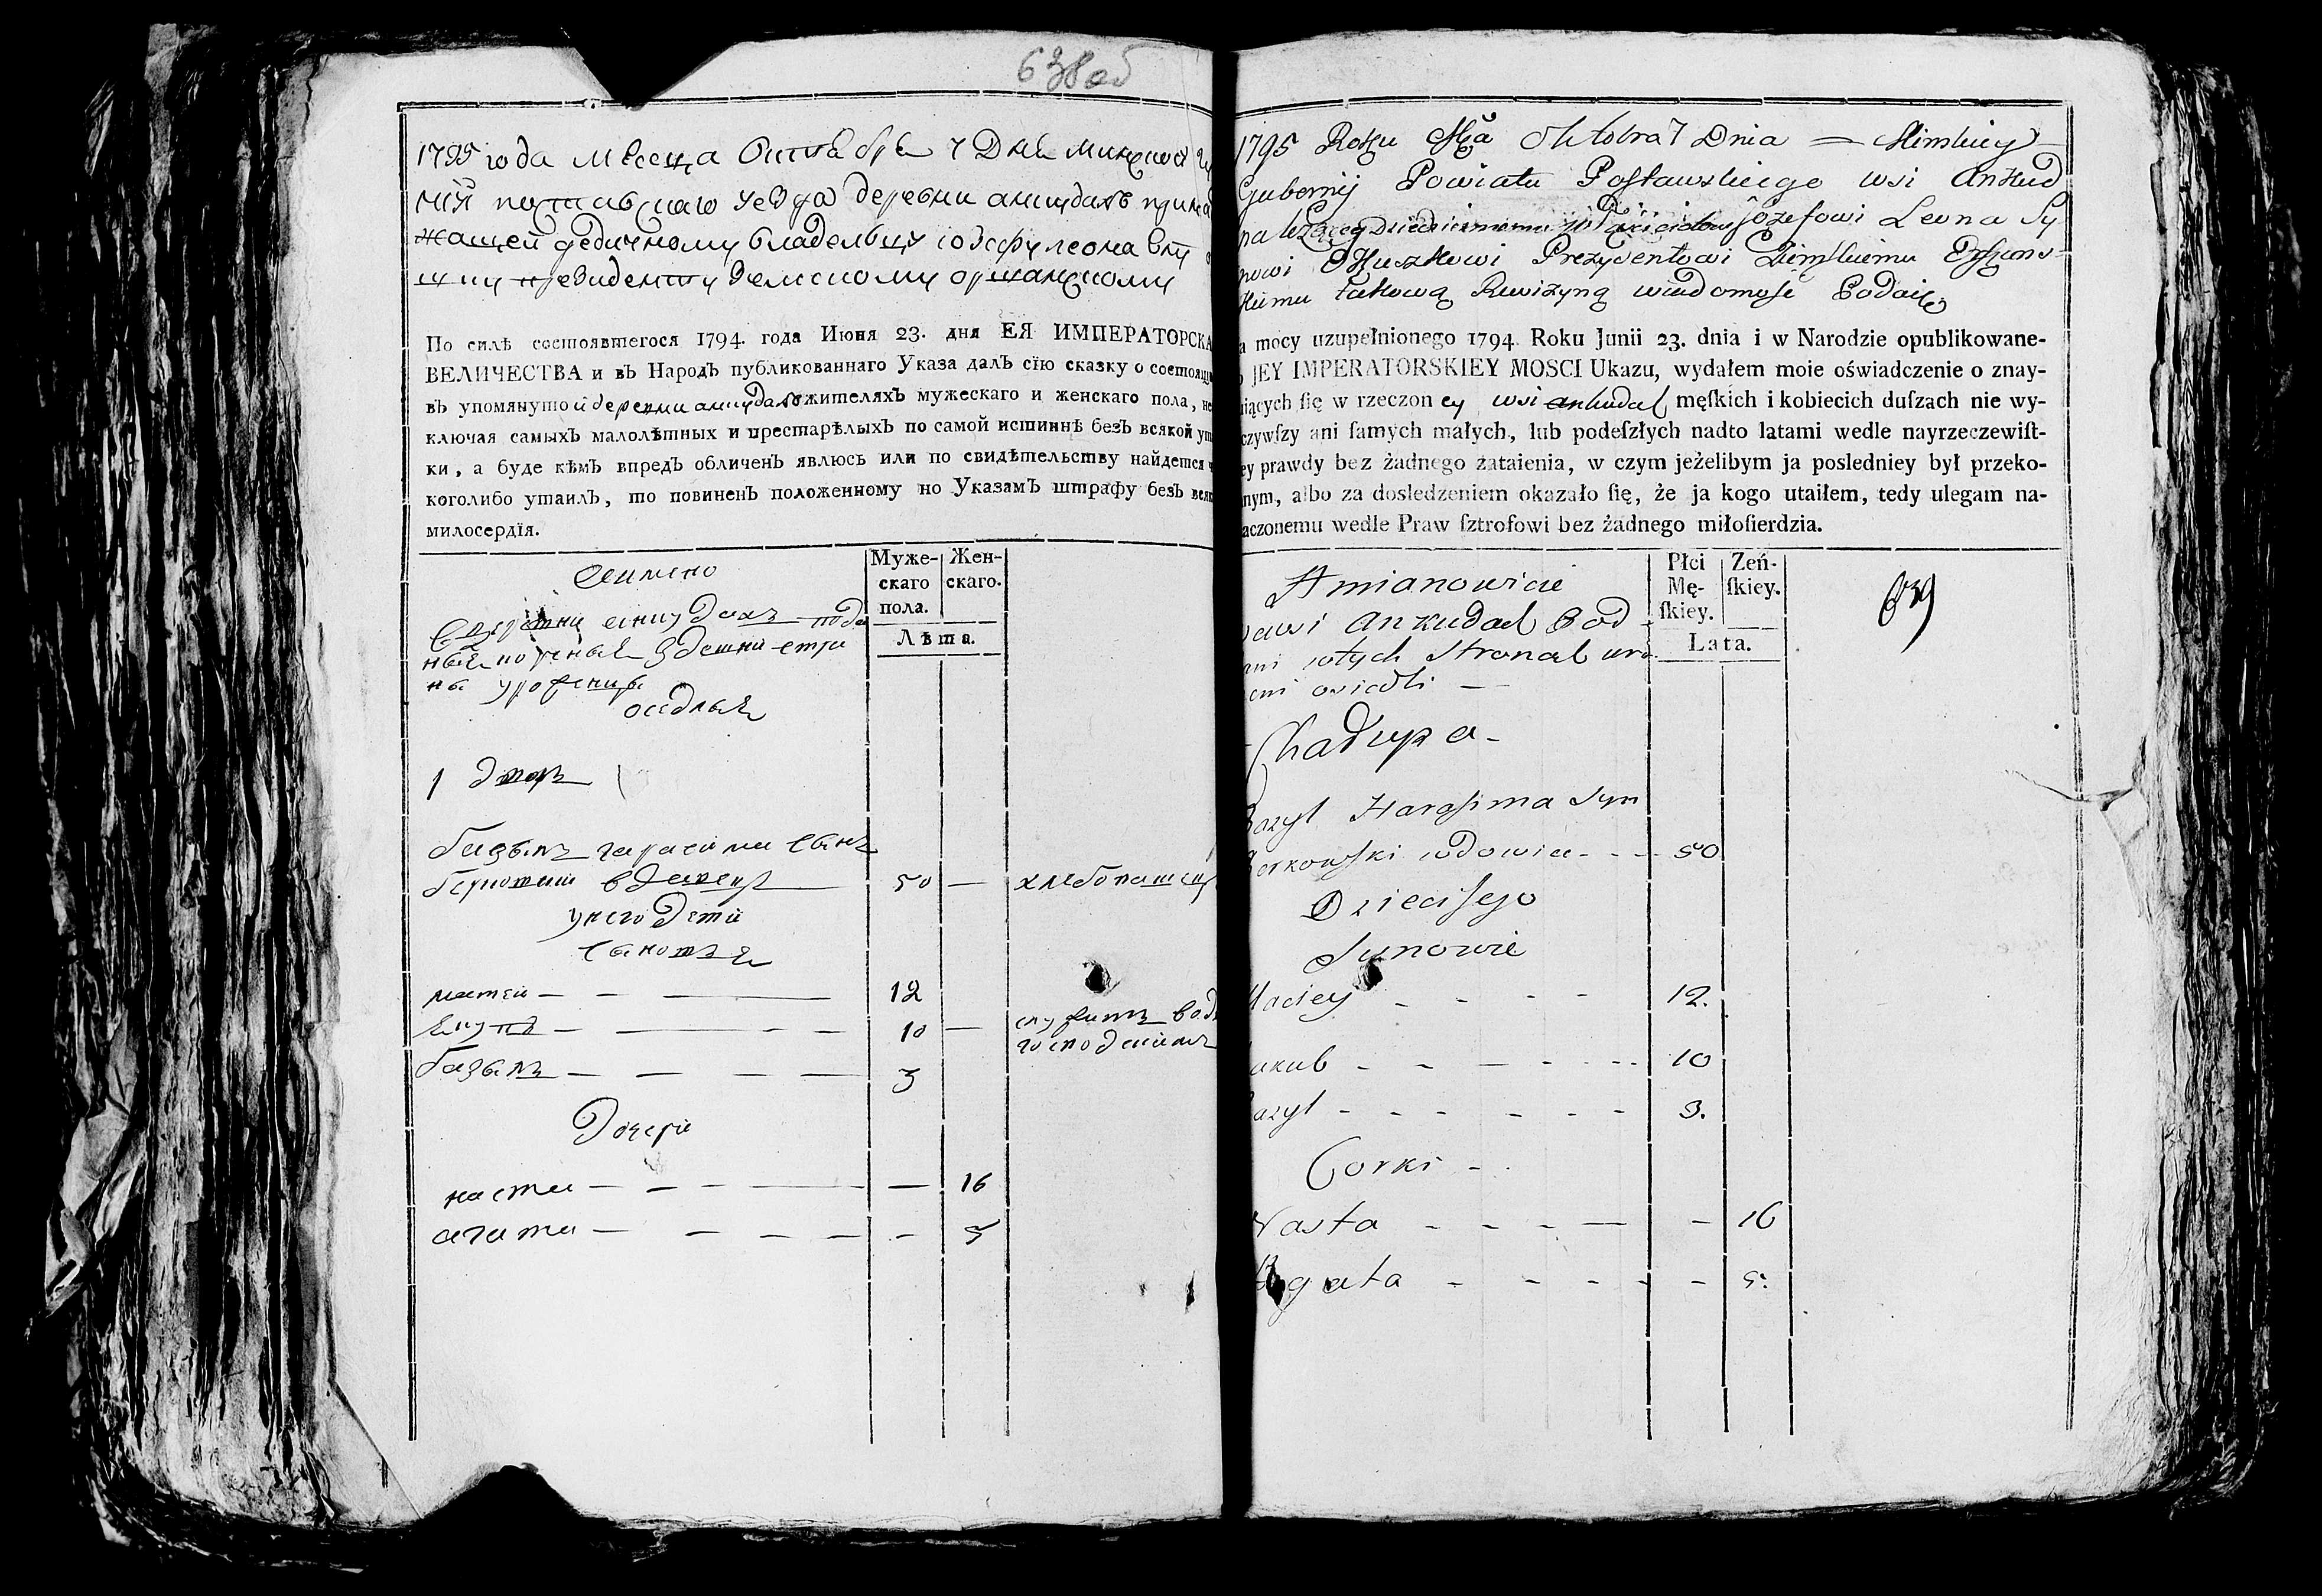 638 об
1795 года месеца Октебре 7 Дне минскои гу
нїи поставскаго уезда деревни анкудахъ прина
жащей дедичному владельцу юзефу леона сыну
президенту земскому оршанскому
По силѣ состоявшегося 1794. года Июня 23. дня ЕЯ ИМПЕРАТОРСКА
ВЕЛИЧЕСТВА и въ Народъ публикованнаго Указа далъ сїю сказку о состоящи
въ упомянутой деревни анкудахъ жителяхъ мужескаго и женскаго пола, не
ключая самыхъ малолѣтныхъ и престарѣлыхъ по самой истиннѣ безъ всякой ут
ки, а буде кѣмъ впредъ обличенъ явлюсь или по свидѣтельству найдется ч
коголибо утаилъ, то повиненъ положенному по Указамъ штрафу безъ вся
милосердїя.
Муже-
скаго
пола.
Жен-
скаго.
Лѣта.
аимено
деревни анкудахъ
здешни
ны уроженцы
оседлые
1 дворъ
базылъ гарасима сынъ
вдовецъ — 50 — хлебопашец
у него Дети
сыновья
матей — — — 12
якубъ — — — 10 — служитъ
базылъ — — — 3
Дочери
наста — — — — 16
агата — — — — 5
1795 Roku Mca Oktobra 7 Dnia = Minskiey
Gubernij Powiatu Postawskiego wsi Ankud
Dziedzicznemu Józefowi Leona Sy
nowi Prezydentowi Ziemskiemu Orszans-
kiemu takową Rewizyną wiadomość Podaię
a mocy uzupełnionego 1794 Roku Junii 23. dnia i w Narodzie opublikowane-
o JEY IMPERATORSKIEY MOSCI Ukazu, wydałem moie oświadczenie o znay-
uiących ſię w rzeczoney wsi ankudach męſkich i kobiecich duſzach nie wy-
czywſzy ani ſamych małych, lub podeſzłych nadto latami wedle nayrzeczewiſt-
ey prawdy bez żadnego zataienia, w czym jeżelibym ja posledniey był przeko-
nym, albo za dosledzeniem okazało ſię, że ja kogo utaiłem, tedy ulegam na-
aczonemu wedle Praw ſztrofowi bez żadnego miłoſierdzia.
Płci
Mę-
ſkiey.
Zeń-
ſkiey.
Lata.
639
Amianowicie
wsi Ankudach Pod
ani w tych Stronach uro
eni osiedli —
Chałupa -
Bazyl Harasima Syn
wdowiec - - - 50
Dzieci jego
Synowie
Maciey - - - - 12.
Jakub - - - - - 10
Bazyl - - - - - - 3.
Corki -
Nasta - - - — - 16
Agata - - - - - 5.